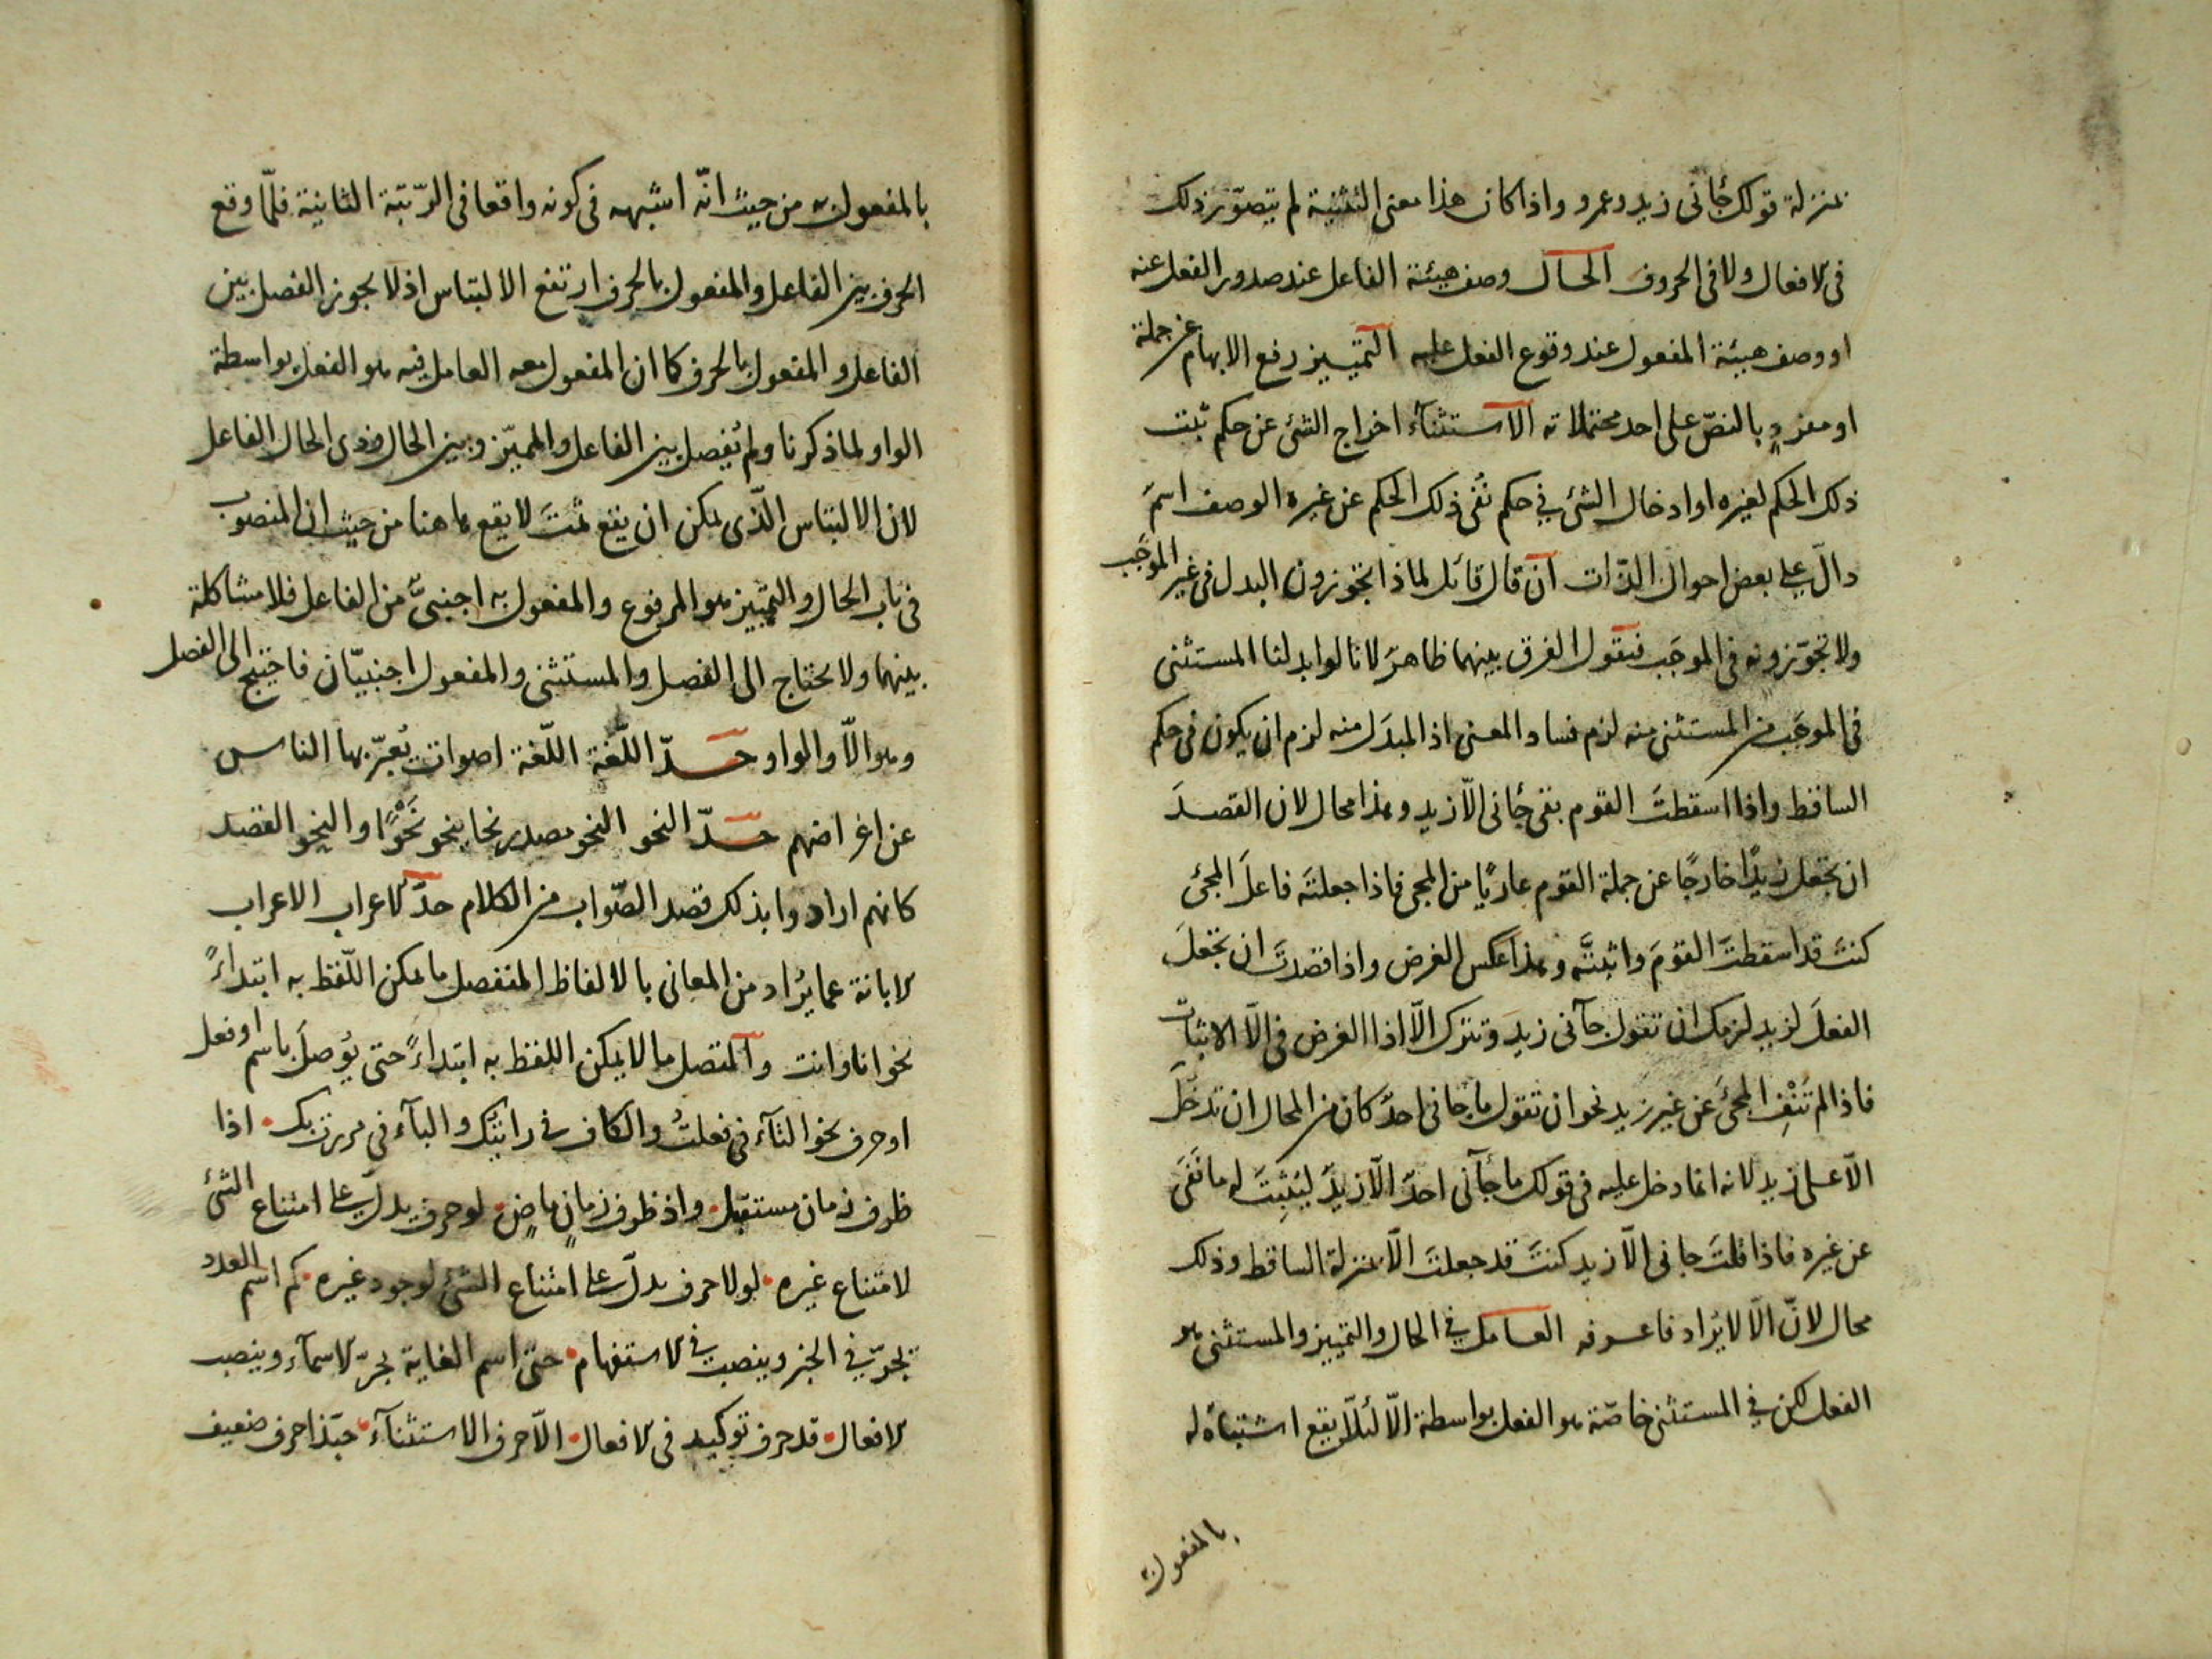 بمنزلة قولك جاءنى زيد وعمرو واذا كان هذا معنى التثنية لم يتصوّر ذلك
فى الافعال ولا فى الحروف الحال وصف هيئة الفاعل عند صدور الفعل عنه
او وصف هيئة المفعول عند وقوع الفعل عليه التمييز رفع الابهام عن جملة
او مفردٍ بالنصّ على احد محتملاته الاستثناء اخراج الشئ عن حكم ثبت
ذلك الحكم لغيره او ادخال الشئ فى حكم نُفى ذلك الحكم عن غيره الوصف اسمٌ
دالّ على بعض احوال الذّات ان قال قائل لماذا تجوّزون البدل فى غير الموجَب
ولا تجوّزونه فى الموجَب فنقول الفرق بينهما ظاهرٌ لانا لو ابدلنا المستثنى
فى الموجَب من المستثنى منه لزم فساد المعنى اذ المبدَل منه لزم ان يكون فى حكم
الساقط واذا اسقطتَ القوم بقى جاءنى الّا زيد وهذا محال لان القصدَ
ان تجعل زيدًا خارجًا عن جملة القوم عاريًا من المجئ فاذا جعلتَه فاعلَ المجئ
كنتَ قد اسقطتَ القومَ واثبتَّه وهذا عكس الغرض واذا قصدتَ ان تجعلَ
الفعلَ لزيد لزمك ان تقول جآنى زيد وتترك الّا اذا الغرض فى الّا الاثبات
فاذا لم تَنْفِ المجئَ عن غير زيد نحو ان تقول ما جانى احدٌ كان من المحال ان تدخل
الّا على زيد لانه انما دخل عليه فى قولك ما جآنى احدٌ الّا زيدٌ ليُثبِتَ له ما نَفَى
عن غيره فاذا قلتَ جانى الّا زيد كنتَ قد جعلتَ الّا بمنزلة الساقط وذلك
محال لانّ الّا لا يُزاد فاعرفه العامل فى الحال والتمييز والمستثنى هو
الفعل لكن فى المستثنى خاصّة هو الفعل بواسطة الّا لئلّا يقع اشتباهٌ له
بالمفعول به
بالمفعول به من حيث انّه اشبهه فى كونه واقعا فى الرّتبة الثانية فلمّا وقع
الحرف بين الفاعل والمفعول بالحرف ارتفع الالتباس اذ لا يجوز الفصل بين
الفاعل والمفعول بالحرف كما ان المفعول معه العامل فيه هو الفعل بواسطة
الواو لما ذكرنا ولم يُفصل بين الفاعل والمميّز وبين الحال وذى الحال الفاعل
لان الالتباس الّذى يمكن ان يقع ثمّتَ لا يقع هاهنا من حيث ان المنصوب
فى باب الحال والتمييز هو المرفوع والمفعول به اجنبىٌّ من الفاعل فلا مشاكلة
بينهما ولا يحتاج الى الفصل والمستثنى والمفعول اجنبيّان فاحتيج الى الفصل
وهو الّا والواو حدّ اللّغة اللّغة اصوات يُعبّر بها الناس
عن اغراضهم حدّ النحو النحو مصدر نحا ينحو نَحْوًا والنحو القصد
كانهم ارادوا بذلك قصد الصّواب من الكلام حدّ الاعراب الاعراب
الابانة عما يُراد من المعانى بالالفاظ المنفصل ما يمكن اللّفظ به ابتداءً
نحو انا وانت والمتصل ما لا يمكن اللفظ به ابتداءً حتى يُوصلَ باسم او فعل
او حرف نحو التآء فى فعلتُ والكاف فى رايتك والبآء فى مررت بك اذا
ظرف زمان مستقبل واذ ظرف زمانٍ ماضٍ لو حرف يدلّ على امتناع الشئ
لامتناع غيره لولا حرف يدلّ على امتناع الشئ لوجود غيره كم اسم العدد
تجرّ فى الخبر وينصب فى الاستفهام حتى اسم الغاية يجرّ الاسمآء وينصب
الافعال قد حرف توكيد فى الافعال الّا حرف الاستثنآء حبّذا حرف ضعيف